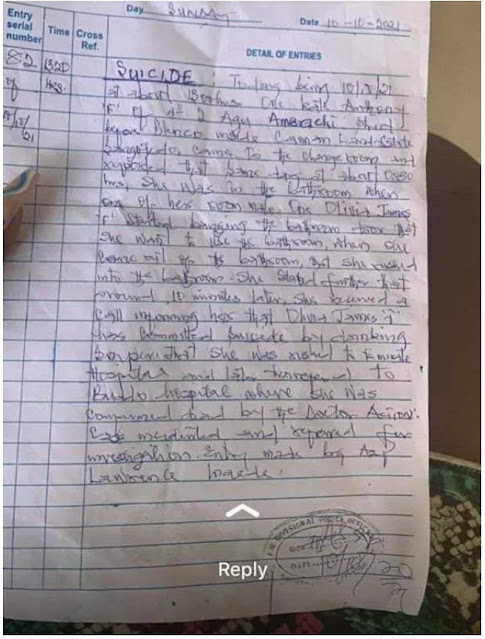 Day SUNDAY
Date 10-10-2021
Entry serial number
Time
Cross Ref.
DETAIL OF ENTRIES
82
1320
Hrs.
SUICIDE: Today being 10/10/21
at about 1300hrs One Kate Anthony
'F' of No 2 Agu Amarachi Street
beyond Blenco made Camon Land Estate
Sangotedo, came to the charge room and
reported that same day at about 0930
hrs, she was in the bathroom when
one of her room mate One Olivia James
'F' started banging the bathroom door that
she want to use the bathroom, when she
came out of the bathroom, she rushed
into the bathroom. She stated further that
around 10 minutes later, she received a
call informing her that Olivia James 'F'
has committed suicide by drinking
sniper that she was rushed to
Hospital and later transferred to
hospital where she was
confirmed dead by the Doctor. Action:
Case incidented and referred for
investigation. Entry made by
Lawrence
DIVISIONAL POLICE OFFICER
Reply